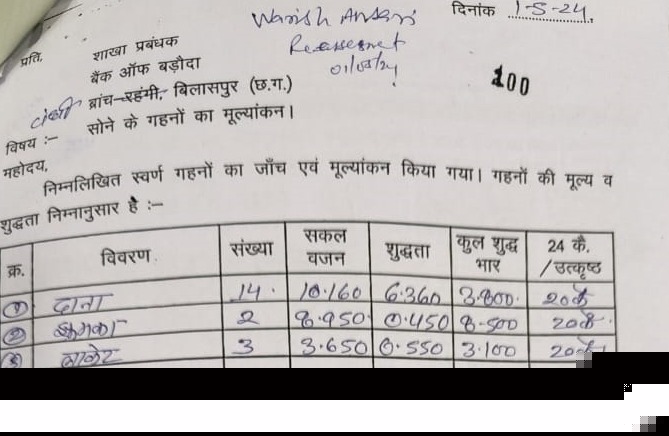 Warish Ansari
दिनांक 1-5-24.
Reassesment
01/05/24
प्रति,
शाखा प्रबंधक
बैंक ऑफ बड़ौदा
100
ब्रांच-रहंगी, बिलासपुर (छ.ग.)
विषय :- सोने के गहनों का मूल्यांकन।
महोदय,
निम्नलिखित स्वर्ण गहनों का जाँच एवं मूल्यांकन किया गया। गहनों की मूल्य व
शुद्धता निम्नानुसार है :-
क्र. विवरण संख्या सकल वजन शुद्धता कुल शुद्ध भार 24 कै. /उत्कृष्ठ
① दाना 14. 10.160 6.360 3.800. 20कै
② झुमका 2 8.950 0.450 8.500 20कै.
③ 3 3.650 0.550 3.100 20कै